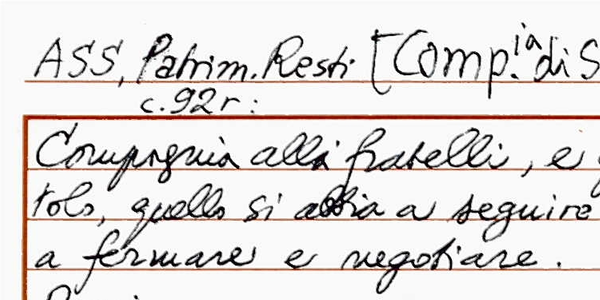 ASS, Patrim. Resti [Comp.ia di S
c. 92r:
Compagnia alli fratelli, e
tolo, quello si abbia a seguire
a fermare e negotiare.